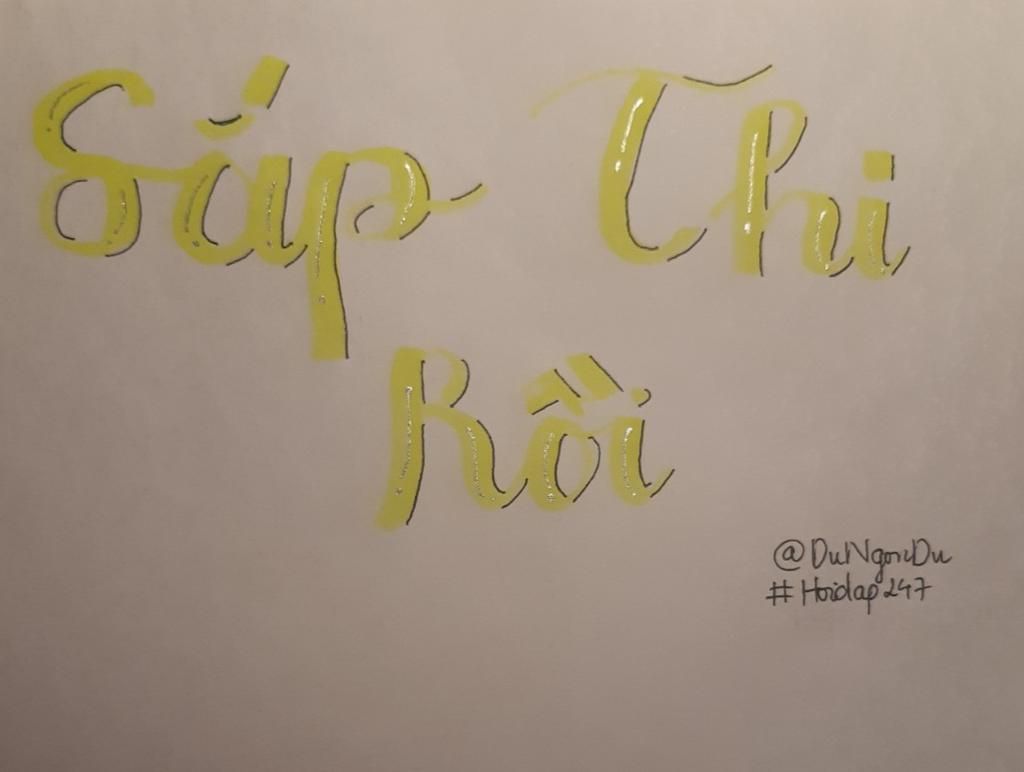 Sắp Thi
Rồi
@DuNgocDu
#Hoidap247